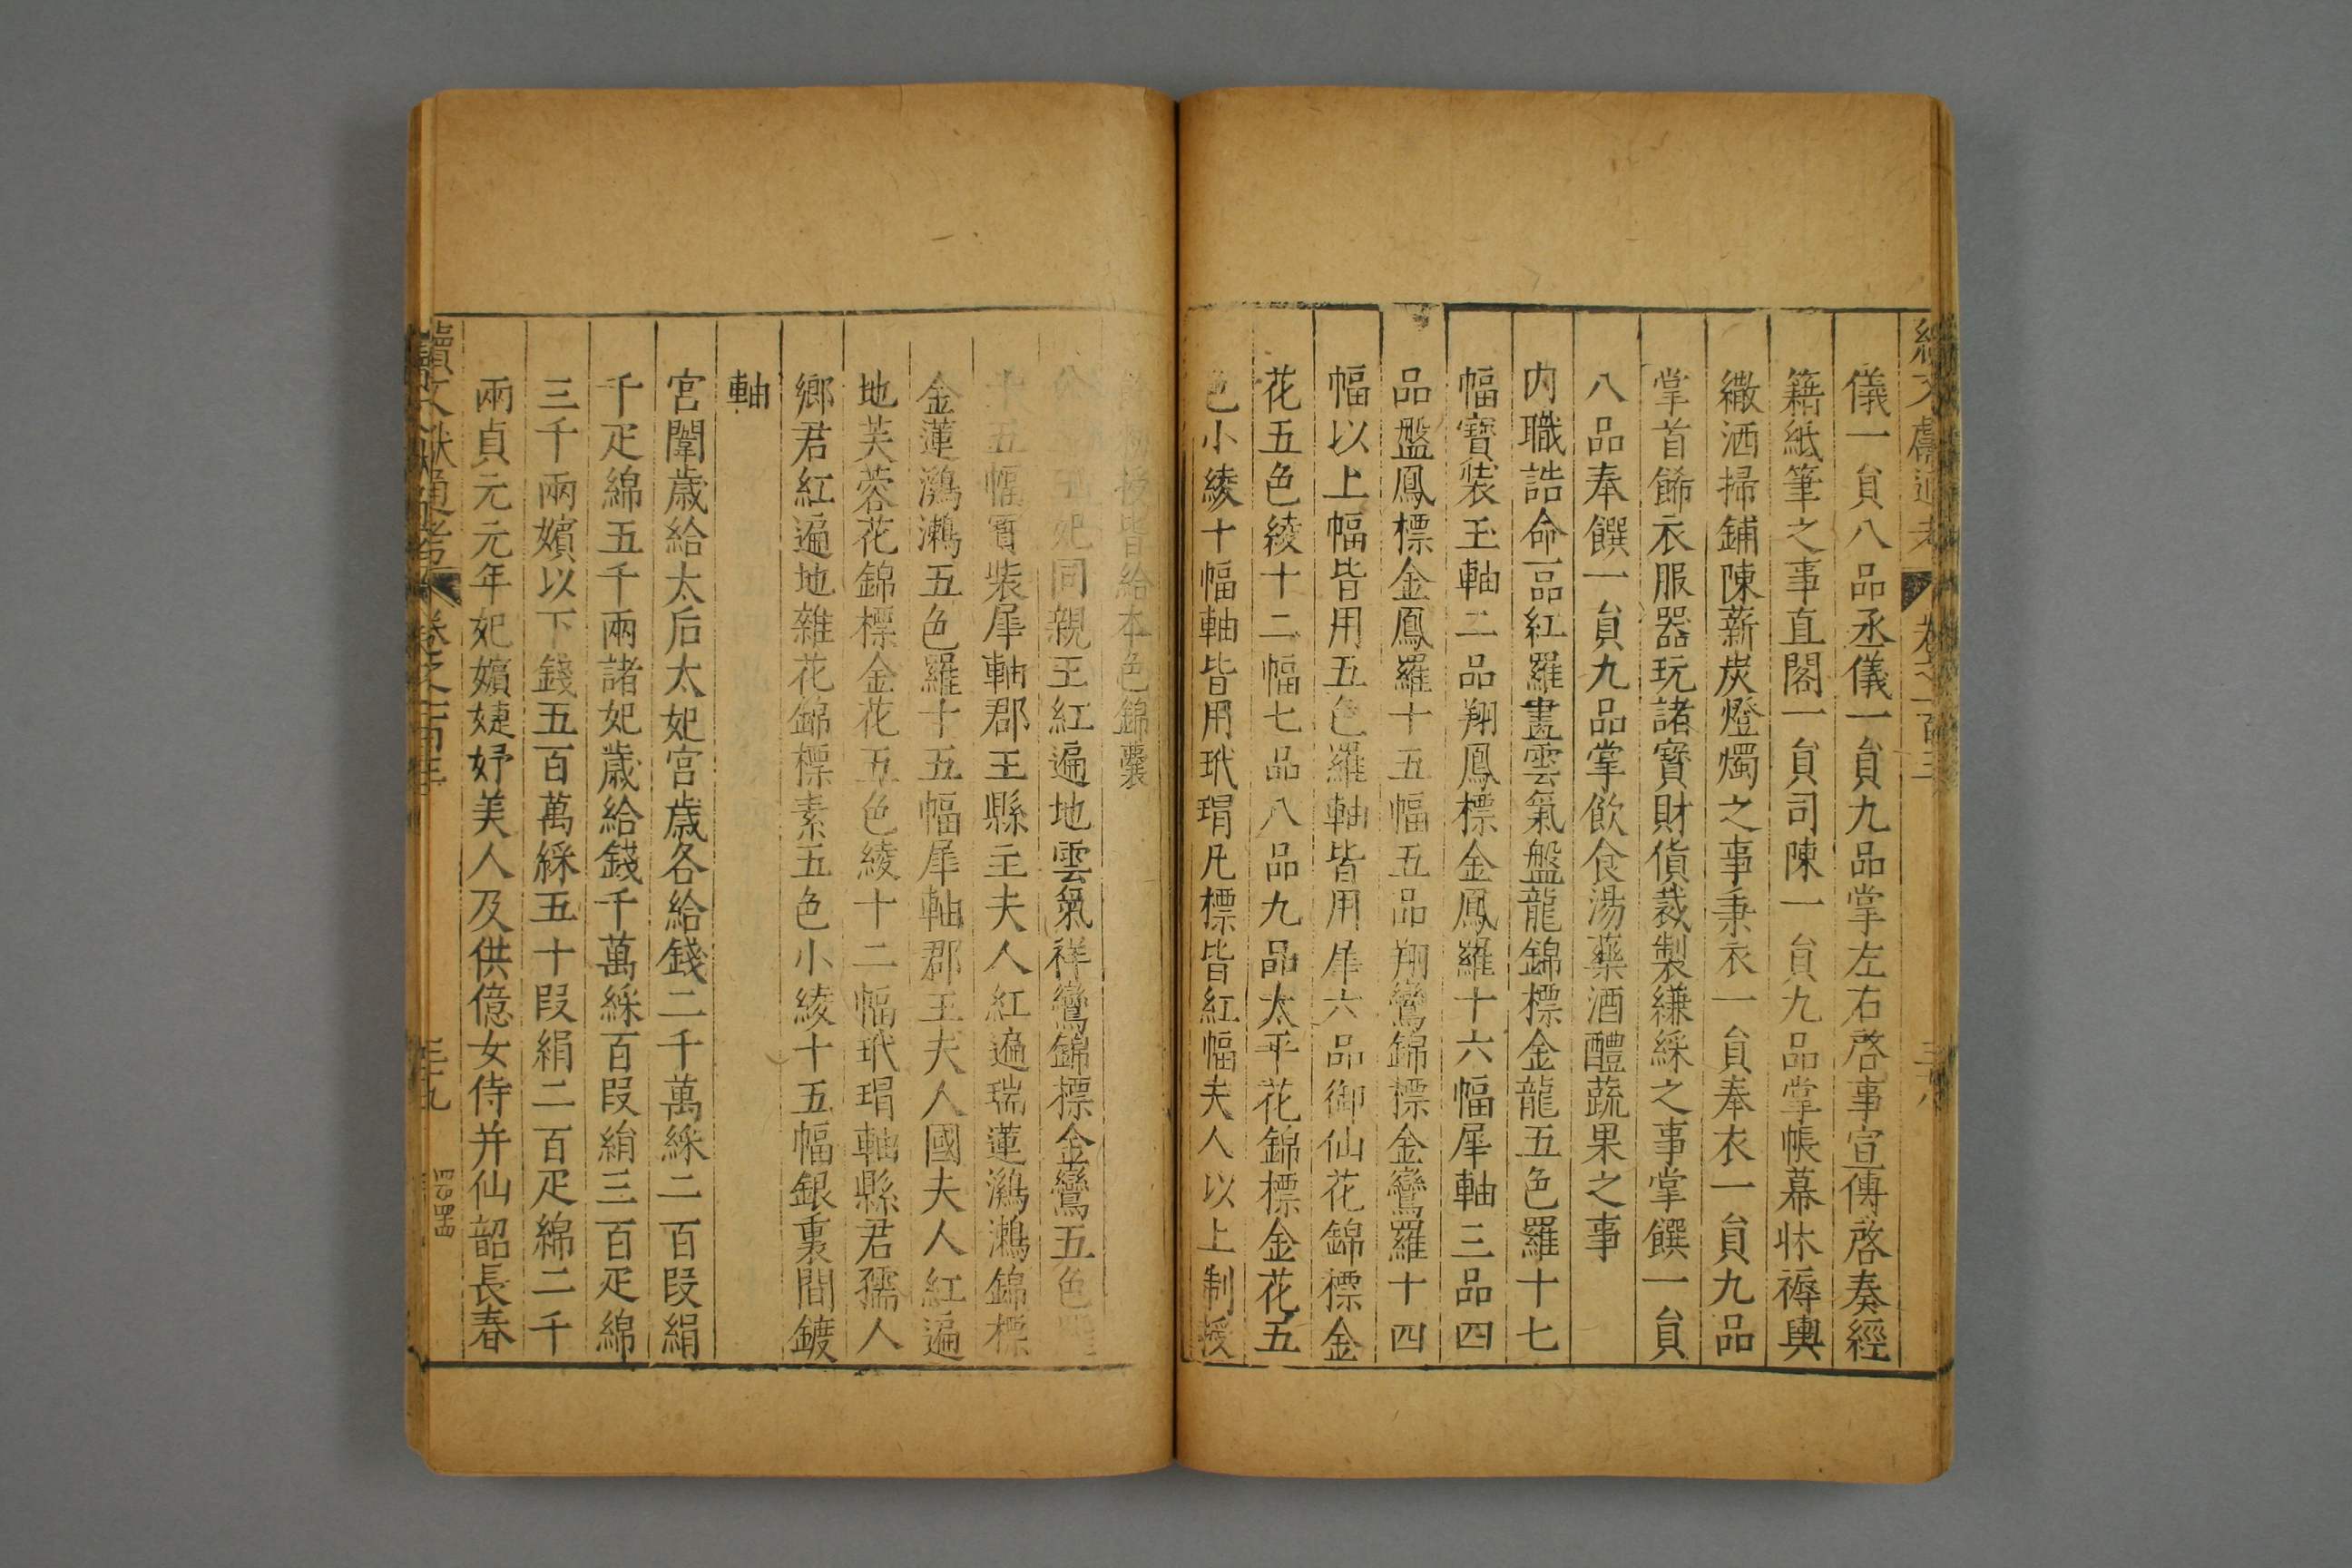 續文獻通考 卷之一百三 三十八
儀一貟八品丞儀一貟九品掌左右啓事宣傳啓奏經
籍紙筆之事直閣一貟司陳一貟九品掌帳幕牀褥輿
繖洒掃鋪陳薪炭燈燭之事秉衣一貟奉衣一貟九品
掌首餙衣服器玩諸寳財貨裁製縑綵之事掌饌一貟
八品奉饌一貟九品掌飲食湯藥酒醴蔬果之事
内職誥命一品紅羅畫雲氣盤龍錦標金龍五色羅十七
幅寳裝玉軸二品翔鳳標金鳳羅十六幅犀軸三品四
品盤鳳標金鳳羅十五幅五品翔鸞錦標金鸞羅十四
幅以上幅皆用五色羅軸皆用犀六品御仙花錦標金
花五色綾十二幅七品八品九品太平花錦標金花五
色小綾十幅軸皆用玳瑁凡標皆紅幅夫人以上制授
授皆給本色錦囊
妃同親王紅遍地雲氣祥鸞錦標金鸞五色羅
十五幅寳裝犀軸郡王縣主夫人紅遍瑞蓮鸂鶒錦標
金蓮鸂鶒五色羅十五幅犀軸郡王夫人國夫人紅遍
地芙蓉花錦標金花五色綾十二幅玳瑁軸縣君孺人
鄉君紅遍地雜花錦標素五色小綾十五幅銀裏間鍍
軸
宮闈歳給太后太妃宮歳各給錢二千萬綵二百段絹
千疋綿五千兩諸妃歳給錢千萬綵百段絹三百疋綿
三千兩嬪以下錢五百萬綵五十段絹二百疋綿二千
兩貞元元年妃嬪婕妤美人及供億女侍并仙韶長春
續文獻通考 卷之一百三 三十九